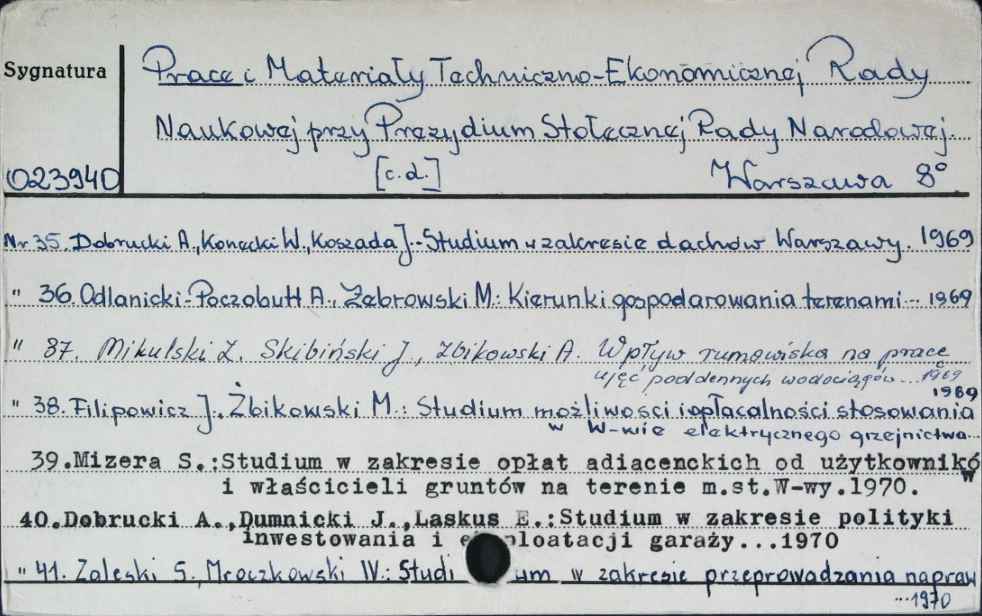 Sygnatura
Prace i Materiały Techniczno-Ekonomicznej Rady
Naukowej przy Prezydium Stołecznej Rady Narodowej.
023940
[c.d.] Warszawa 8°
Nr 35. Dobrucki A., Konecki W., Koszada J.-Studium w zakresie dachów Warszawy. 1969
" 36. Odlanicki-Poczobutt A., Zebrowski M.: Kierunki gospodarowania terenami... 1969
" 37. Mikulski Z. Skibiński J., Zbikowski A. Wpływ rumowiska na pracę
ujęć poddennych wodociągów... 1969
" 38. Filipowicz J., Żbikowski M.: Studium możliwości i opłacalności stosowania 1969
w W-wie elektrycznego grzejnictwa...
39.Mizera S.:Studium w zakresie opłat adiacenckich od użytkowników
i właścicieli gruntów na terenie m.st.W-wy.1970.
40.Dobrucki A.,Dumnicki J.,Laskus E.:Studium w zakresie polityki
inwestowania i eksploatacji garaży...1970
" 41. Zaleski S., Mroczkowski W.: Studium w zakresie przeprowadzania napraw
...1970